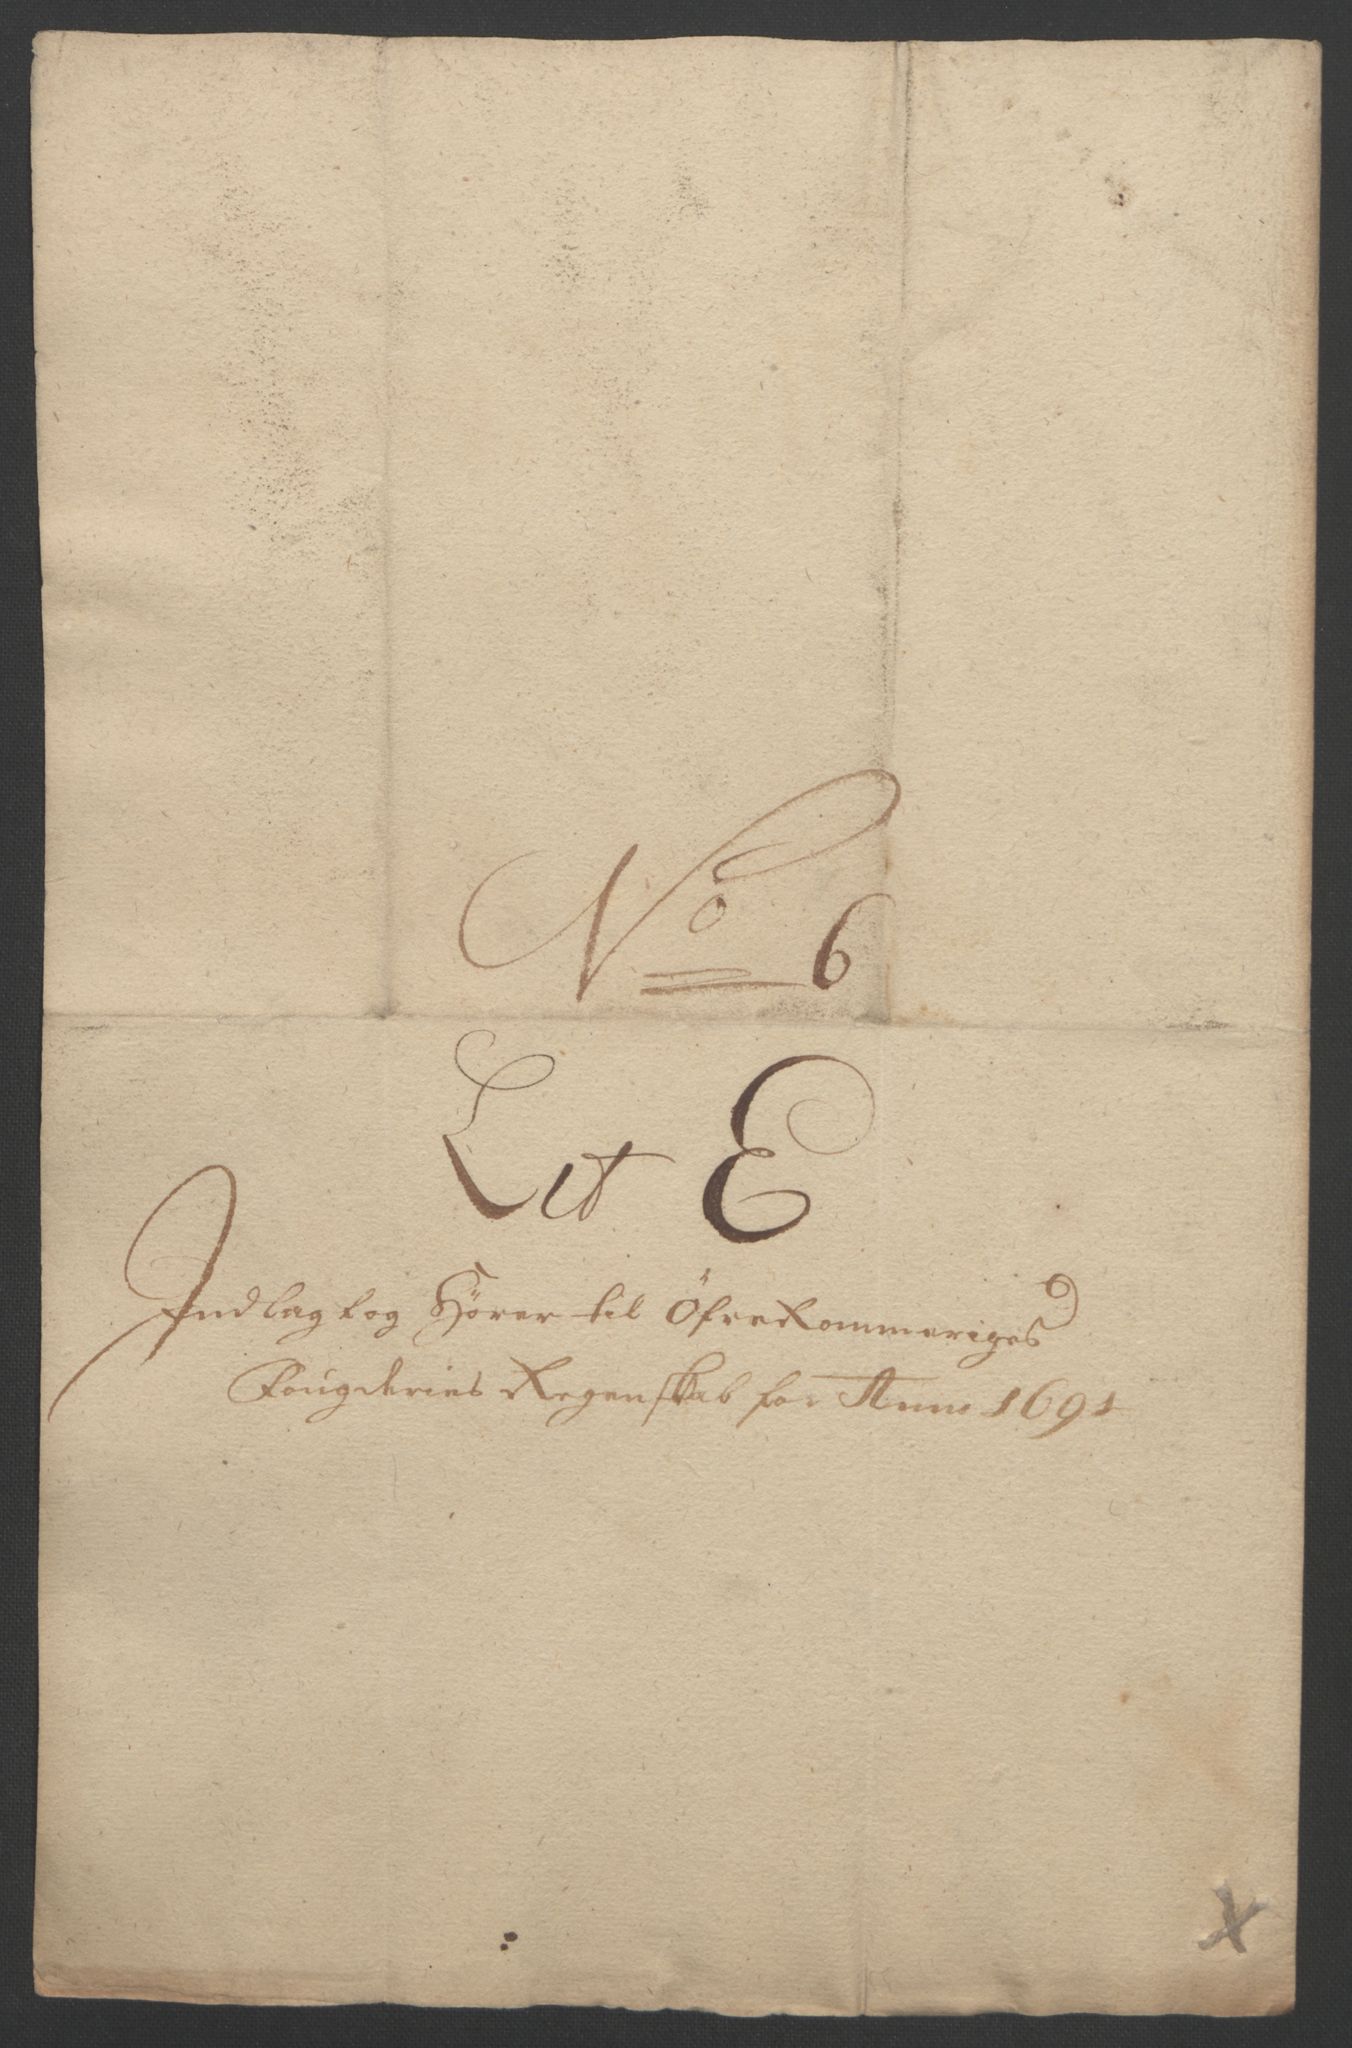 No 6
Lit E
Indlagt og Hører til Öfre Rommeriges
Fougderies Regenskab for Anno 1691
X